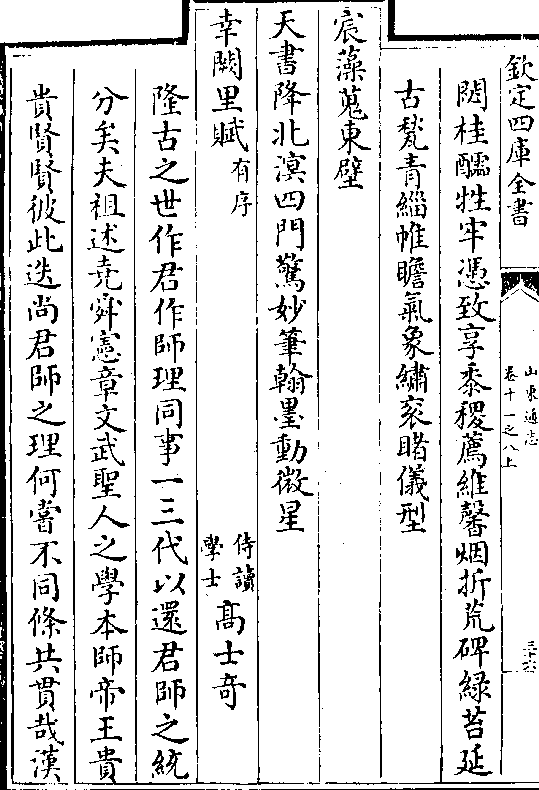 欽定四庫全書
山東通志
卷十一之八上
三十六
閟桂醑牲牢憑致享黍稷薦維馨烟折荒碑綠苔延
古甃青緇帷瞻氣象繡衮睹儀型
宸藻蒐東壁
天書降北溟四門驚妙筆翰墨動微星
幸闕里賦有序
侍讀學士高士奇
隆古之世作君作師理同事一三代以還君師之統
分矣夫祖述堯舜憲章文武聖人之學本師帝王貴
貴賢賢彼此迭尚君師之理何嘗不同條共貫哉漢